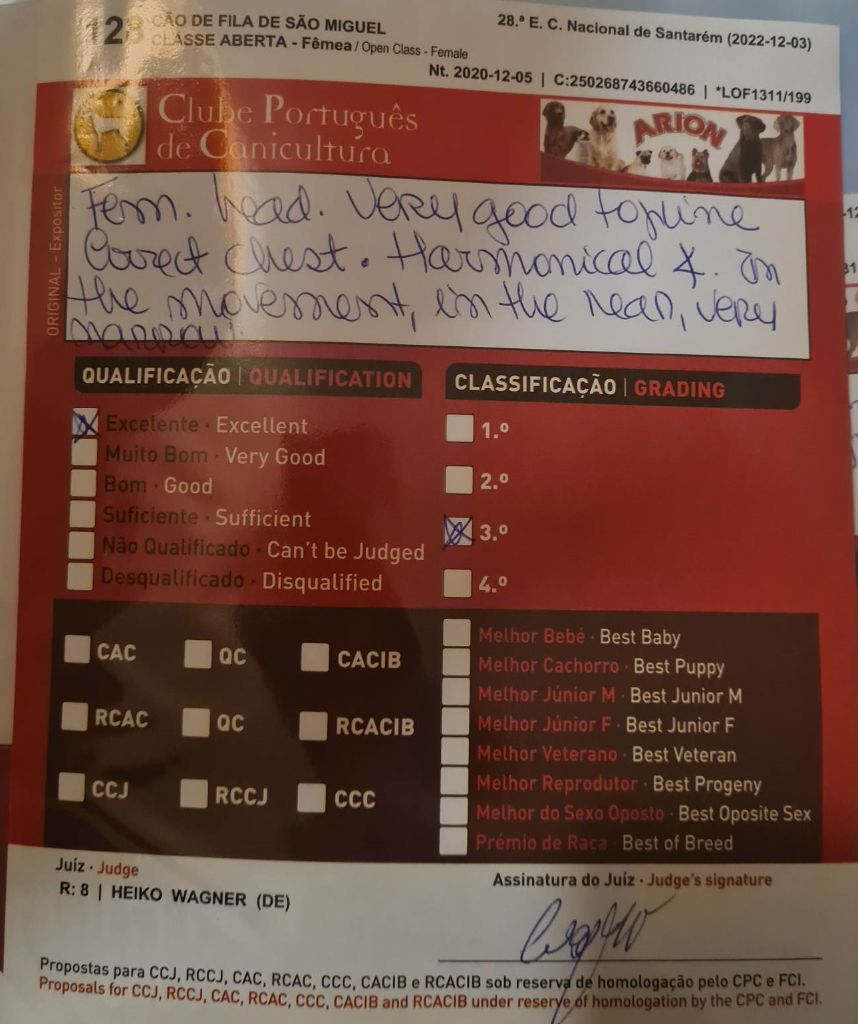 128 CÃO DE FILA DE SÃO MIGUEL
CLASSE ABERTA - Fêmea / Open Class - Female
28.ª E. C. Nacional de Santarém (2022-12-03)
Nt. 2020-12-05 | C:250268743660486 | *LOF1311/199
Clube Português
de Canicultura
ARION
ORIGINAL – Expositor
Fem. head. Very good topline
Correct chest. Harmonical &. In
the movement, in the rear, very
narrow.
QUALIFICAÇÃO | QUALIFICATION
Excelente · Excellent
Muito Bom · Very Good
Bom · Good
Suficiente · Sufficient
Não Qualificado · Can't be Judged
Desqualificado · Disqualified
CLASSIFICAÇÃO | GRADING
1.º
2.º
3.º
4.º
CAC QC CACIB
RCAC QC RCACIB
CCJ RCCJ CCC
Melhor Bebé · Best Baby
Melhor Cachorro · Best Puppy
Melhor Júnior M · Best Junior M
Melhor Júnior F · Best Junior F
Melhor Veterano · Best Veteran
Melhor Reprodutor · Best Progeny
Melhor do Sexo Oposto · Best Oposite Sex
Prémio de Raça · Best of Breed
Juíz · Judge
R: 8 | HEIKO WAGNER (DE)
Assinatura do Juíz · Judge's signature
Propostas para CCJ, RCCJ, CAC, RCAC, CCC, CACIB e RCACIB sob reserva de homologação pelo CPC e FCI.
Proposals for CCJ, RCCJ, CAC, RCAC, CCC, CACIB and RCACIB under reserve of homologation by the CPC and FCI.